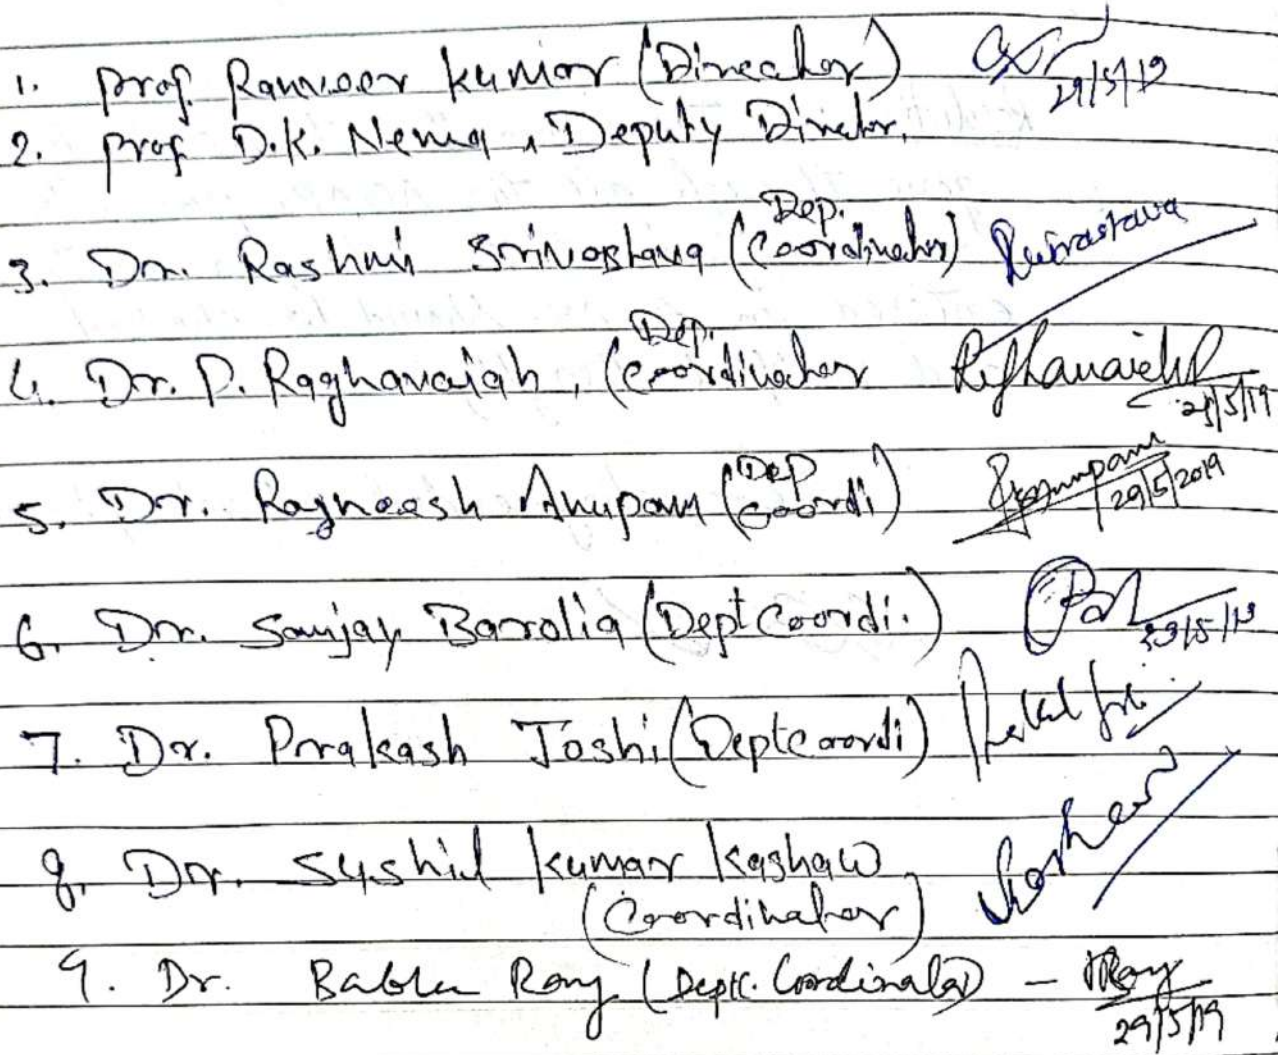 1. Prof. Ranveer Kumar (Director) 29/5/19
2. Prof D.K. Nema, Deputy Director,
3. Dr. Rashmi Srivastava (Dep. Coordinator) Rsrivastava
4. Dr. P. Raghavaiah, (Dep. Coordinator RaghavaiahP 29/5/19
5. Dr. Rajneesh Anupam (Dep Coordi) Rajanupam 29/5/2019
6. Dr. Sanjay Barolia (Dept Coordi.)
7. Dr. Prakash Joshi (Dept Coordi)
8. Dr. Sushil Kumar Kashaw
(Coordinator)
9. Dr. Bablu Ray (Deptt. Coordinator) – BRay
29/5/19